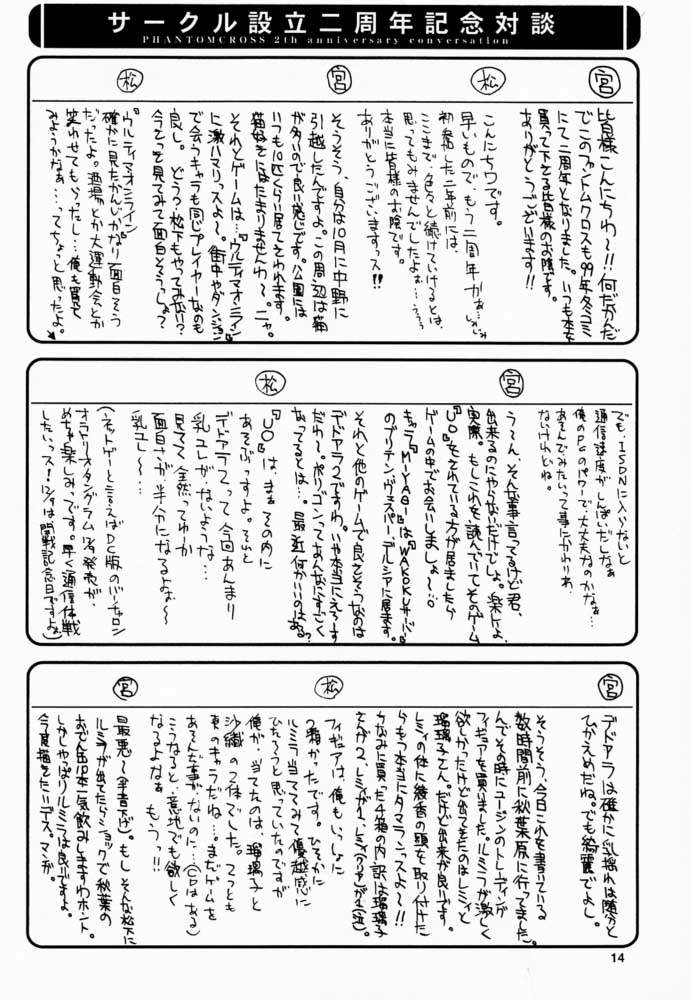 サークル設立二周年記念対談
PHANTOMCROSS 2th anniversary conversation
宮
皆様こんにちわ〜!!何だかんだ
でこのファントムクロスも99年冬コミ
にて二周年となりました。いつも本を
買って下さる皆様のお陰です。
ありがとうございます!!
松
こんにちワです。
早いもので、もう二周年かぁ…
初発行した二年前には、
ここまで色々と続けていけるとは、
思ってもみませんでしたよぉ…
本当に皆様のお陰です。
ありがとうございますっス!!
宮
そうそう、自分は10月に中野に
引越したんですよ。この周辺は猫
が多いので良い感じです。公園には
いつも10匹くらい居てそわれます。
猫好きにはたまりませんわ〜。ニャ。
それとゲームは…『ウルティマオンライン』
に激ハマリっスよ〜。街中やダンジョン
で会うキャラも同じプレイヤーなのも
良し。どう?松下もやってみない?
今さっき見てみて面白そうっしょ?
松
『ウルティマオンライン』
確かに見たかんじかなり面白そう
だったよ。酒場とか大運動会とか
笑わせてもらったし…俺も買って
みようかなぁ…ってちょっと思ったよ。
でも、ISDNに入らないと
通信速度がしんぱいだしなぁ
俺のPCのパワーで大丈夫なのかなぁ…
あそんでみたいって事にかわりわ、
ないけれどね。
宮
う〜ん、そんな事言ってるけど君、
出来るのにやらないだけでしょ。楽しよ、
実際。もしこれを読んでいてそのゲーム
『UO』をされている方が居ましたら
ゲームの中でお会いしましょ〜!:O
キャラ『MIYABI』は『WAKOKU』サーバー
のブリテン、ヴェスパー、デルシアに居ます。
それと他のゲームで良さそうなのは
デドアラ2ですわ。いや本当にえろーす
だわ〜。ポリゴンってあんなにすごく
なってるとは…。最近何かいいのはある?
松
『UO』は、まぁその内に
あそぶっすよ。それと
デドアラ2って今回あんまり
乳ユレがないような…
見てて全然ってゆーか
面白さが半分になるよねぇ〜
乳ユレ〜…
(ネットゲーと言えばDC版のバーチャロン
オラトリオタングラム12/9発売が、
めちゃ楽しみっす。早く通信体戦
したいっス!12/9は開戦記念日ですよ。)
宮
デドアラは確かに乳揺れは随分と
ひかえめだね。でも綺麗でよし。
そうそう、今日これを書いている
数時間前に秋葉原に行ってました。
んでその時にユージンのトレーディング
フィギュアを買いました。ルミラが激しく
欲しかったけど出てきたのはレミィと
瑠璃子さん。だけど出来が良いです。
レミィの体に綾香の頭を取り付けた
らもう本当にタマランっスよ〜!!
ちなみに買った4箱の内訳は瑠璃子
さんが2、レミィが1、レミィ(クリア)が1(泣)。
松
フィギュアは、俺もいっしょに
2箱かったです。ひそかに
ルミラ当ててみて優越感に
ひたろうと思っていたのですが
俺が、当てたのは、瑠璃子と
沙織の2体でした。てっとも
東のキャラだね…まだゲームを
あそんだ事がないのに…(CDはある)
こうなると意地でも欲しく
なるよなぁ もうっ!!
宮
最悪〜(半音下げ)。もしそんな松下に
ルミラが出てたらショックで秋葉の
おでん缶10本一気飲みしますわホント。
しかしやっぱりルミラは良いですよ。
今度描きたいデス。マンガ。
14